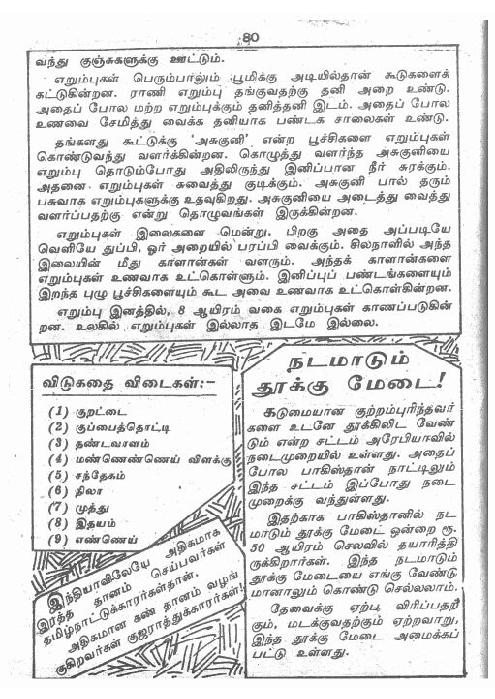 80
வந்து குஞ்சுகளுக்கு ஊட்டும்.
எறும்புகள் பெரும்பாலும் பூமிக்கு அடியில்தான் கூடுகளைக்
கட்டுகின்றன. ராணி எறும்பு தங்குவதற்கு தனி அறை உண்டு.
அதைப் போல மற்ற எறும்புக்கும் தனித்தனி இடம். அதைப் போல
உணவை சேமித்து வைக்க தனியாக பண்டக சாலைகள் உண்டு.
தங்களது கூட்டுக்கு 'அசுகுனி' என்ற பூச்சிகளை எறும்புகள்
கொண்டுவந்து வளர்க்கின்றன. கொழுத்து வளர்ந்த அசுகுனியை
எறும்பு தொடும்போது அதிலிருந்து இனிப்பான நீர் சுரக்கும்.
அதனை எறும்புகள் சுவைத்து குடிக்கும். அசுகுனி பால் தரும்
பசுவாக எறும்புகளுக்கு உதவுகிறது. அசுகுனியை அடைத்து வைத்து
வளர்ப்பதற்கு என்று தொழுவங்கள் இருக்கின்றன.
எறும்புகள் இலைகளை மென்று, பிறகு அதை அப்படியே
வெளியே துப்பி, ஓர் அறையில் பரப்பி வைக்கும். சிலநாளில் அந்த
இலையின் மீது காளான்கள் வளரும். அந்தக் காளான்களை
எறும்புகள் உணவாக உட்கொள்ளும். இனிப்புப் பண்டங்களையும்
இறந்த புழு பூச்சிகளையும் கூட அவை உணவாக உட்கொள்கின்றன.
எறும்பு இனத்தில், 8 ஆயிரம் வகை எறும்புகள் காணப்படுகின்
றன. உலகில் எறும்புகள் இல்லாத இடமே இல்லை.
விடுகதை விடைகள்:-
(1) குறட்டை
(2) குப்பைத்தொட்டி
(3) தண்டவாளம்
(4) மண்ணெண்ணெய் விளக்கு
(5) சந்தேகம்
(6) நிலா
(7) முத்து
(8) இதயம்
(9) எண்ணெய்
இந்தியாவிலேயே அதிகமாக
இரத்த தானம் செய்பவர்கள்
தமிழ்நாட்டுக்காரர்கள்தான்.
அதிகமான கண் தானம் வழங்
குகிறவர்கள் குஜராத்துக்காரர்கள்!
நடமாடும்
தூக்கு மேடை!
கடுமையான குற்றம்புரிந்தவர்
களை உடனே தூக்கிலிட வேண்
டும் என்ற சட்டம் அரேபியாவில்
நடைமுறையில் உள்ளது. அதைப்
போல பாகிஸ்தான் நாட்டிலும்
இந்த சட்டம் இப்போது நடை
முறைக்கு வந்துள்ளது.
இதற்காக பாகிஸ்தானில் நட
மாடும் தூக்கு மேடை ஒன்றை ரூ.
50 ஆயிரம் செலவில் தயாரித்தி
ருக்கிறார்கள். இந்த நடமாடும்
தூக்கு மேடையை எங்கு வேண்டு
மானாலும் கொண்டு செல்லலாம்.
தேவைக்கு ஏற்ப விரிப்பதற்
கும், மடக்குவதற்கும் ஏற்றவாறு,
இந்த தூக்கு மேடை அமைக்கப்
பட்டு உள்ளது.